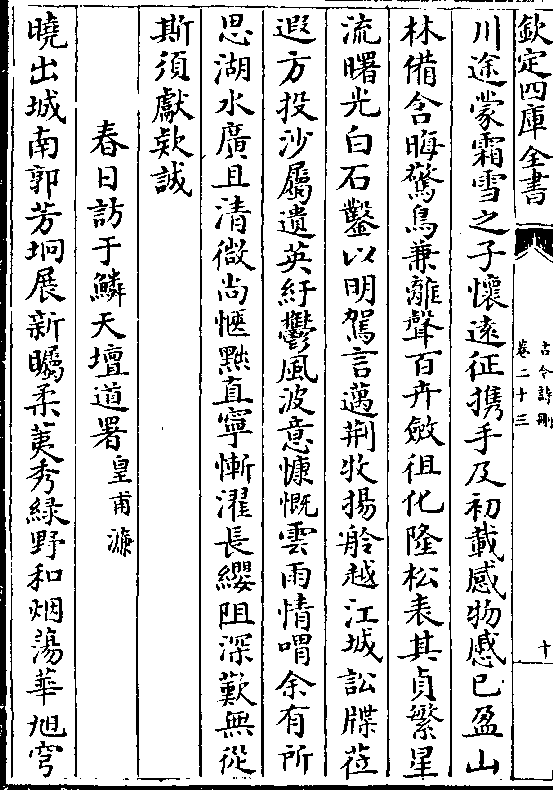 欽定四庫全書
古今詩刪
卷二十三
十
川途蒙霜雪之子懷遠征携手及初載感物感已盈山
林備含晦驚鳥兼離聲百卉斂徂化隆松表其貞繁星
流曙光白石鑿以明駕言邁荆牧揚舲越江城訟牒莅
遐方投沙屬遺英紆鬱風波意慷慨雲雨情喟余有所
思湖水廣且清微尚愜㸃直寧慚濯長纓阻深歎無從
斯須獻欵誠
春日訪于鱗天壇道署皇甫濂
曉出城南郭芳坰展新矚柔荑秀緑野和烟蕩華旭穹